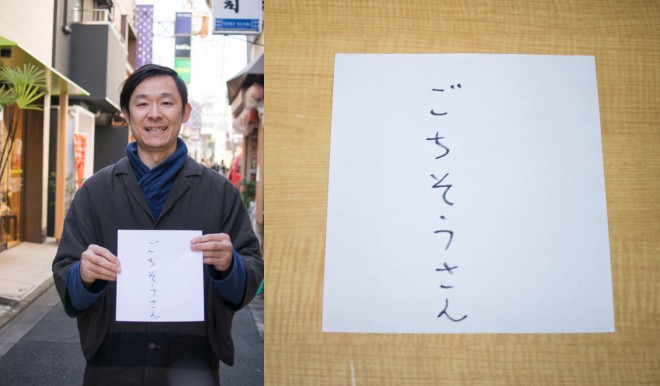 ごちそうさん
ごちそうさん